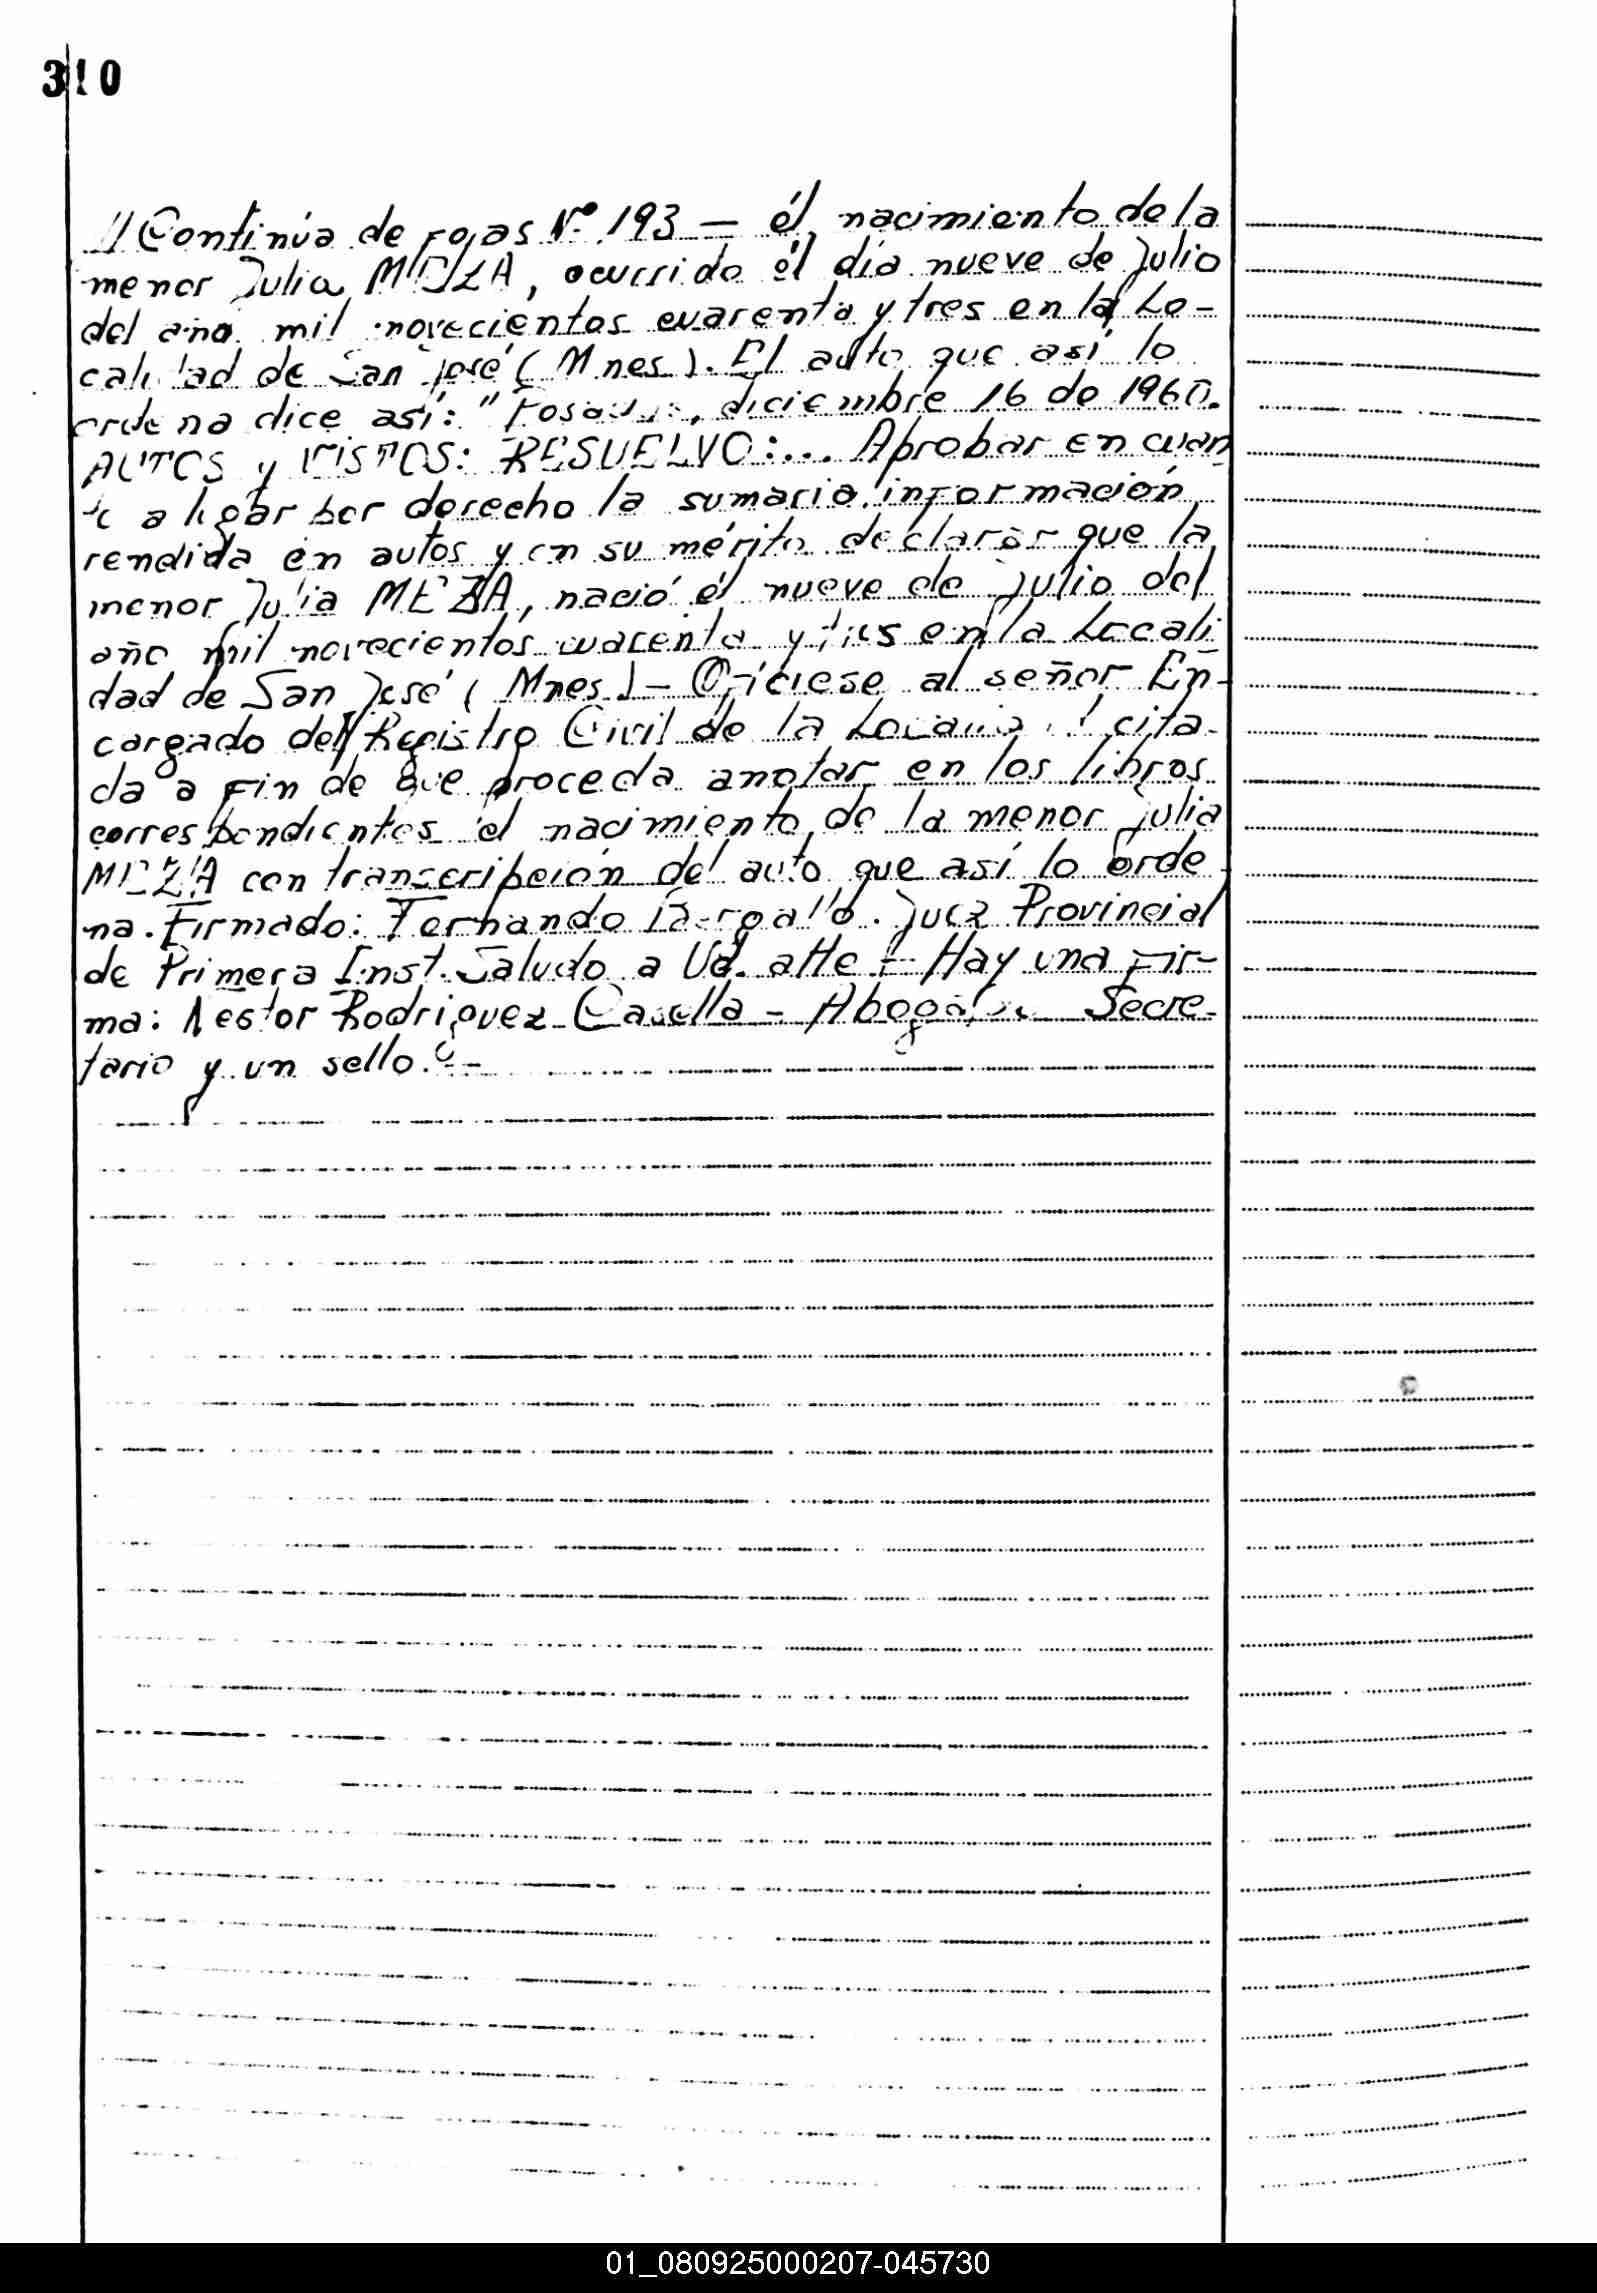 310
// Continúa de fojas Nº 193 — él nacimiento de la
menor Julia MEZA, ocurrido él día nueve de Julio
del año mil novecientos cuarenta y tres en la Lo-
calidad de San José (Mnes). El auto que así lo
ordena dice así: "Posadas, diciembre 16 de 1960.
AUTOS y VISTOS: RESUELVO:... Aprobar en cuan
to a lugar por derecho la sumaria información
rendida en autos y en su mérito declarar que la
menor Julia MEZA, nació él nueve de Julio del
año mil novecientos cuarenta y tres en la Locali
dad de San José (Mnes) — Ofíciese al señor En-
cargado del Registro Civil de la Localidad cita-
da a fin de que proceda anotar en los libros
correspondientes el nacimiento de la menor Julia
MEZA con transcripción del auto que así lo orde
na. Firmado: Fernando Juez Provincial
de Primera Inst. Saludo a Ud. atte — Hay una fir-
ma: Nestor Rodriguez Casella — Abogado Secre-
tario y un sello. —
01_080925000207-045730